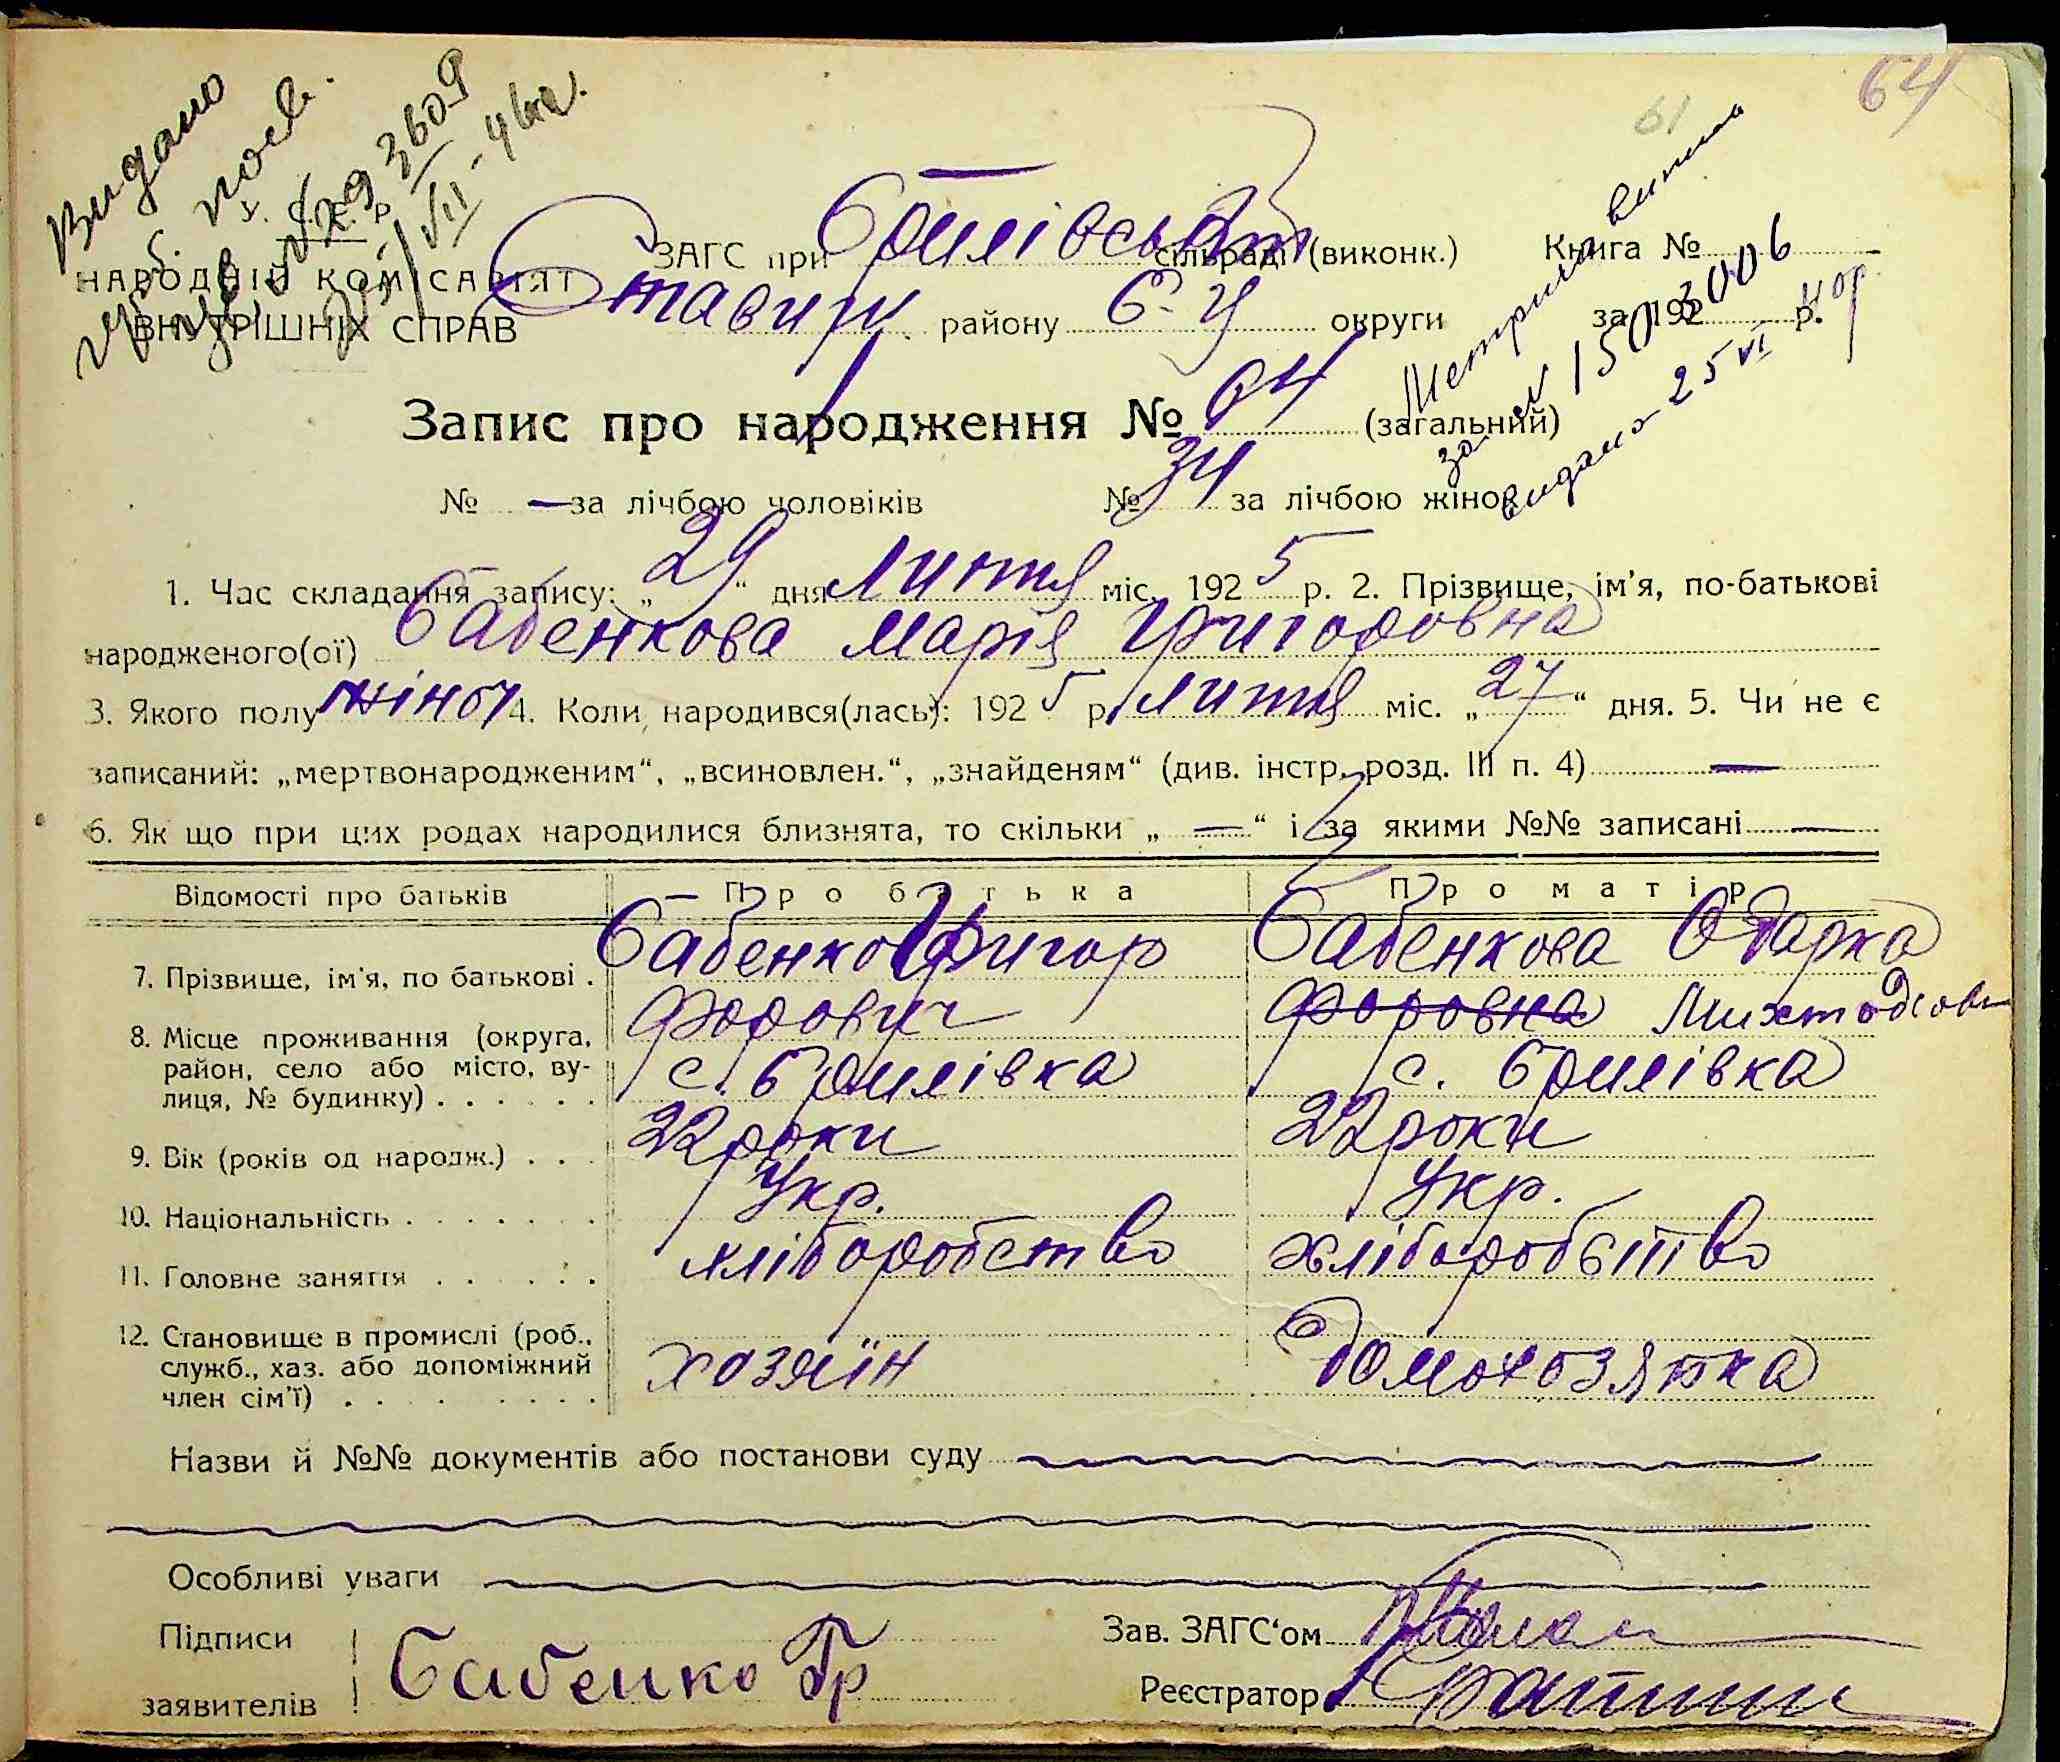 64
61
Видано
У. С. Р. Р.
НАРОДНІЙ КОМІСАРІЯТ
ВНУТРІШНІХ СПРАВ
ЗАГС при Брилівськ сільраді (виконк.) Книга №
Ставищ району Б-Ц округи за 192 р.
Метрика
за № 1503006
видано 25 VI
Запис про народження № 64 (загальний)
№ — за лічбою чоловіків № 34 за лічбою жінок
1. Час складання запису: „ 29 “ дня липня міс. 192 5 р. 2. Прізвище, ім'я, по-батькові
народженого(ої) Бабенкова Марія Григоровна
3. Якого полу жіноч 4. Коли народився(лась): 192 5 р. липня міс. „ 27 “ дня. 5. Чи не є
записаний: „мертвонародженим“, „всиновлен.“, „знайденям“ (див. інстр. розд. III п. 4) —
6. Як що при цих родах народилися близнята, то скільки „ — “ і за якими №№ записані —
Відомості про батьків Про батька Про матір
7. Прізвище, ім'я, по батькові . Бабенко Григор Бабенкова Одарка
8. Місце проживання (округа,
район, село або місто, ву-
лиця, № будинку) . . . . . . с. Брилівка с. Брилівка
9. Вік (років од народж.) . . . 22 роки 22 роки
10. Національність . . . . . . . Укр. Укр.
11. Головне заняття . . . . . . хліборобство хліборобство
12. Становище в промислі (роб.,
служб., хаз. або допоміжний
член сім'ї) . . . . . . . . . хозяїн домохозяйка
Назви й №№ документів або постанови суду
Особливі уваги
Підписи
заявителів Бабенко Гр
Зав. ЗАГС'ом
Реєстратор